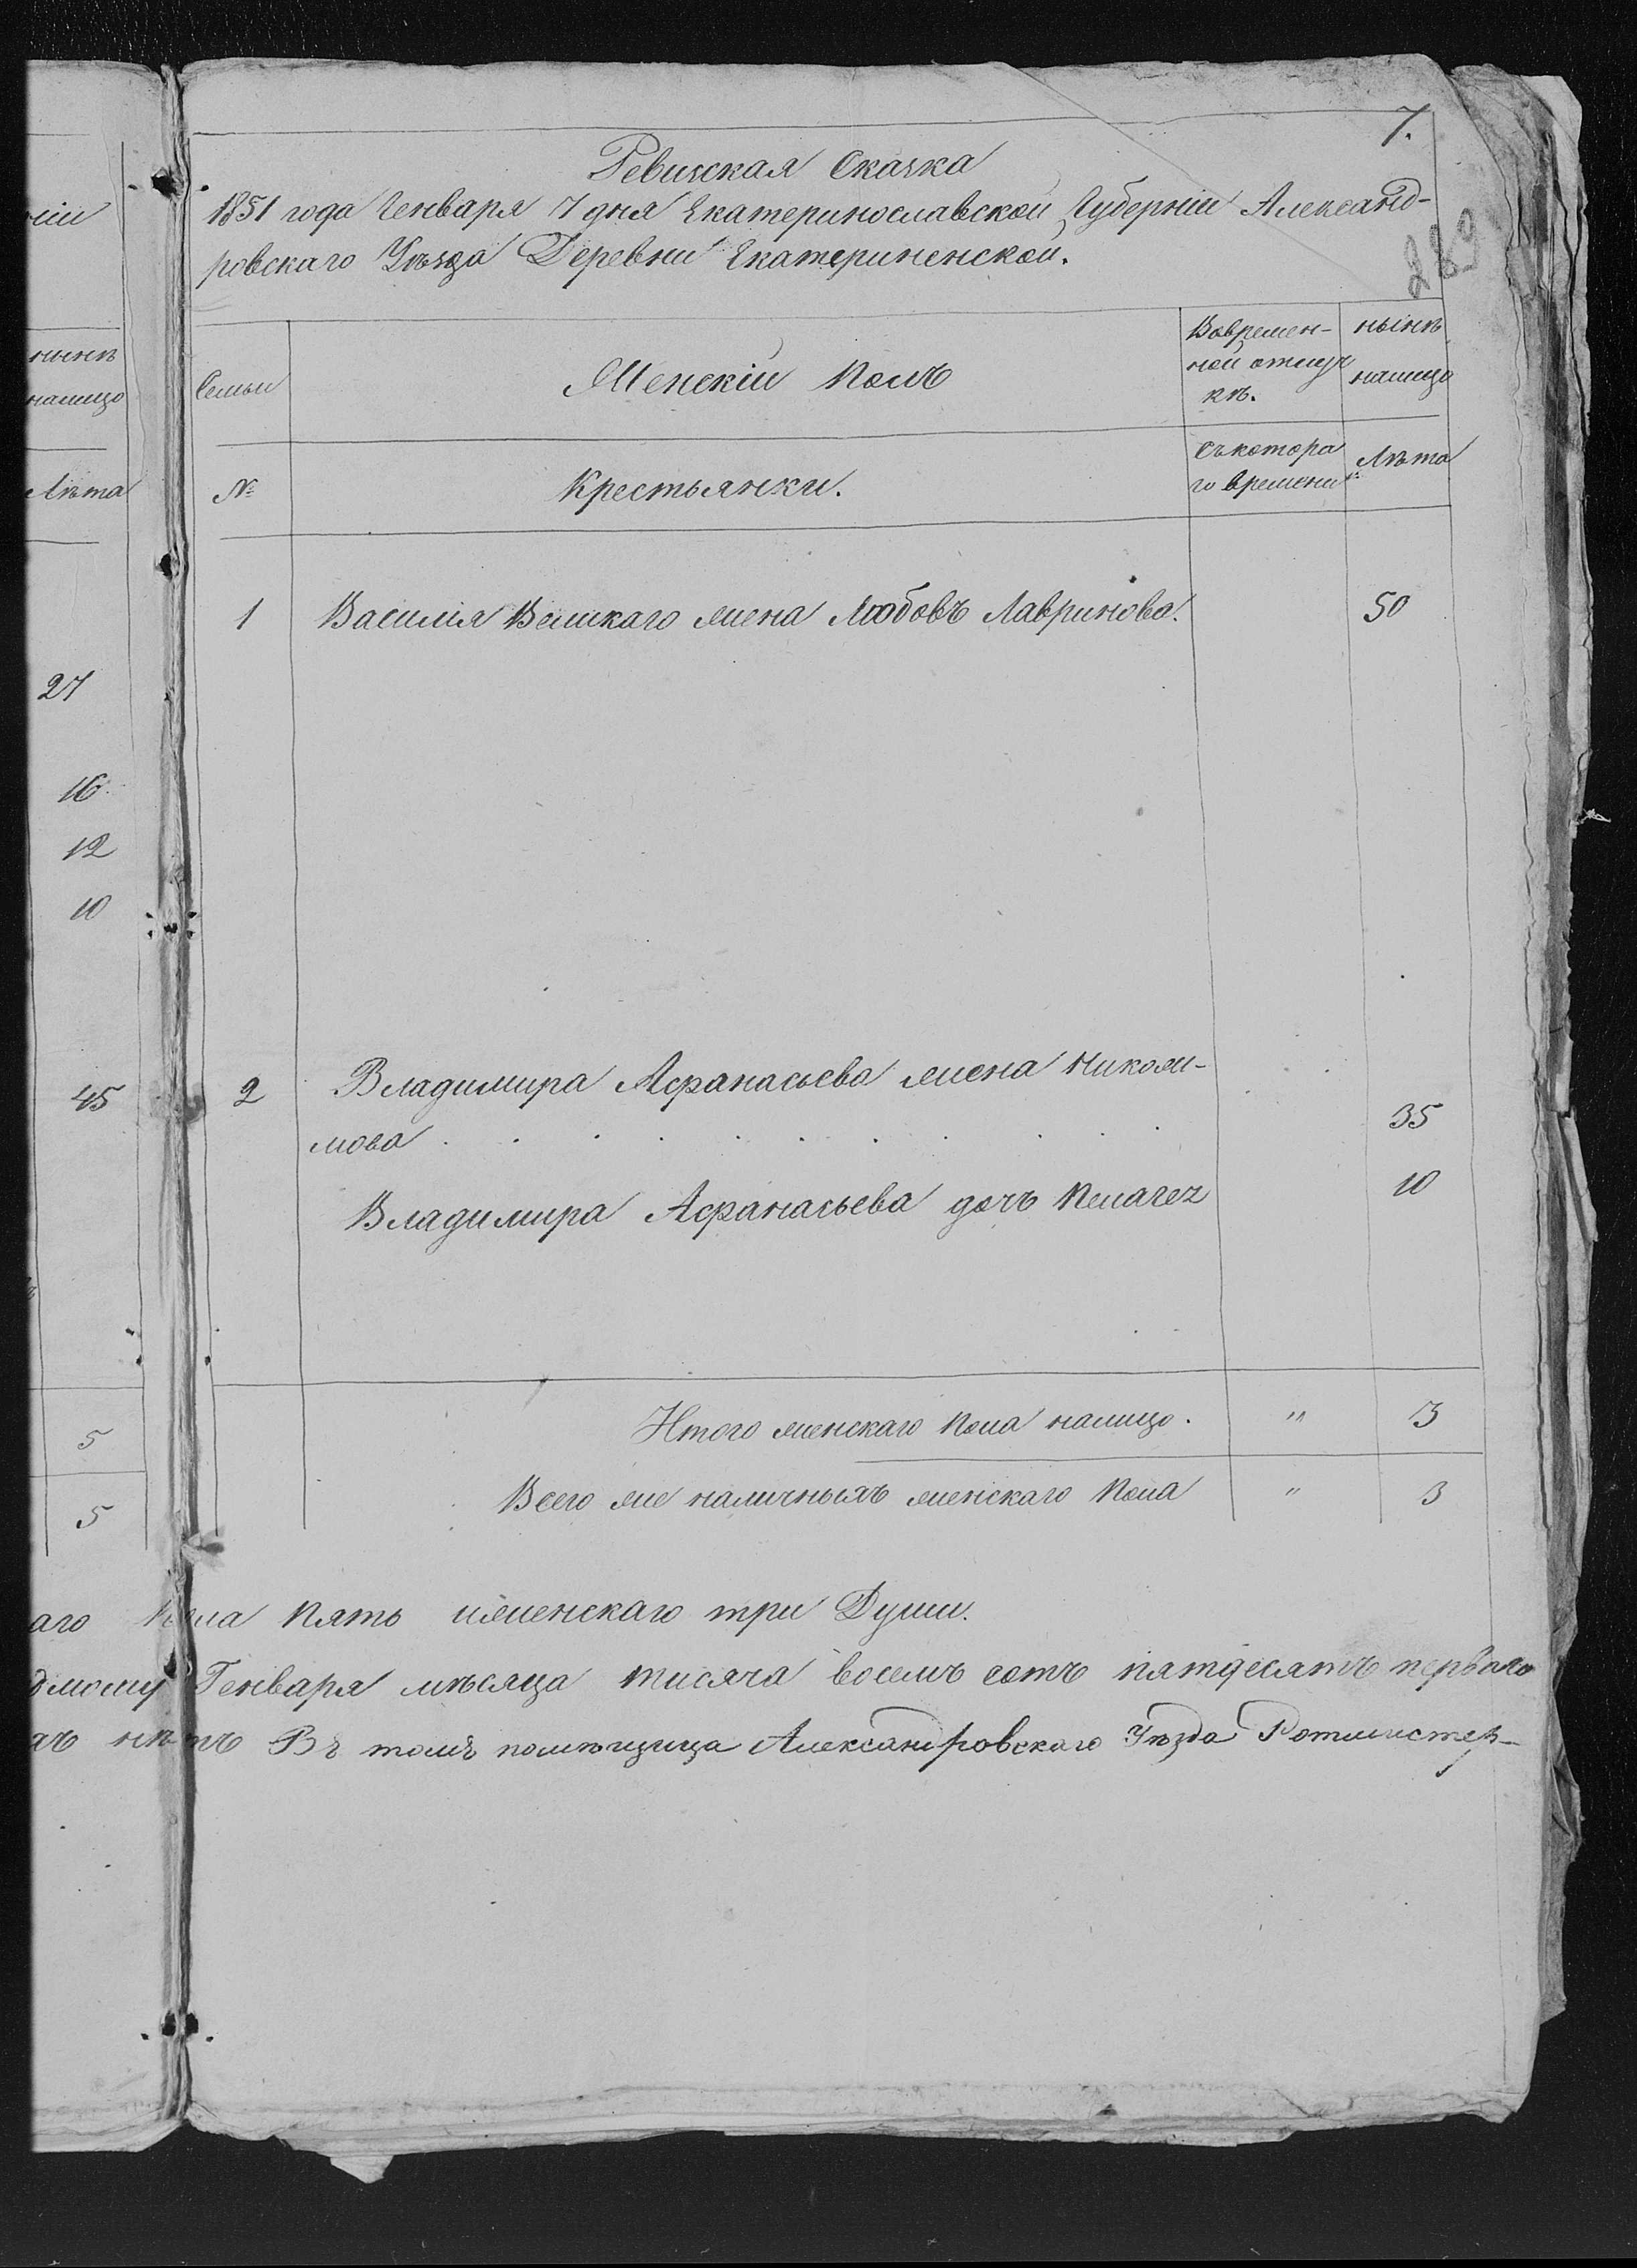 7.
289
Ревизская Сказка
1851 года Генваря 7 дня Екатеринославской Губерніи Александ-
ровскаго Уѣзда Деревни Екатериненской.
Семьи
Женскій Полъ
Вовремен-
ной отлуч
кѣ.
нынѣ
налицо
№
Крестьянки.
съкотора
го времени
Лѣта
1 Василія Великаго жена Любовъ Лавринова. 50
2 Владимира Афанасьева жена Николи-
мова . . . . . . . . . . 35
Владимира Афанасьева дочъ Пелагея 10
Итого женскаго пола налицо. " 3
Всего же наличныхъ женскаго пола " 3
ніи
нынѣ
налицо
Лѣта
27
16
12
10
45
5
5
аго пола пять иженскаго три Души.
Генваря мѣсяца тисяча восемъ сотъ пятдесятъ перваго
нѣтъ Въ томъ помѣщица Александровскаго Уѣзда Ротмистер-